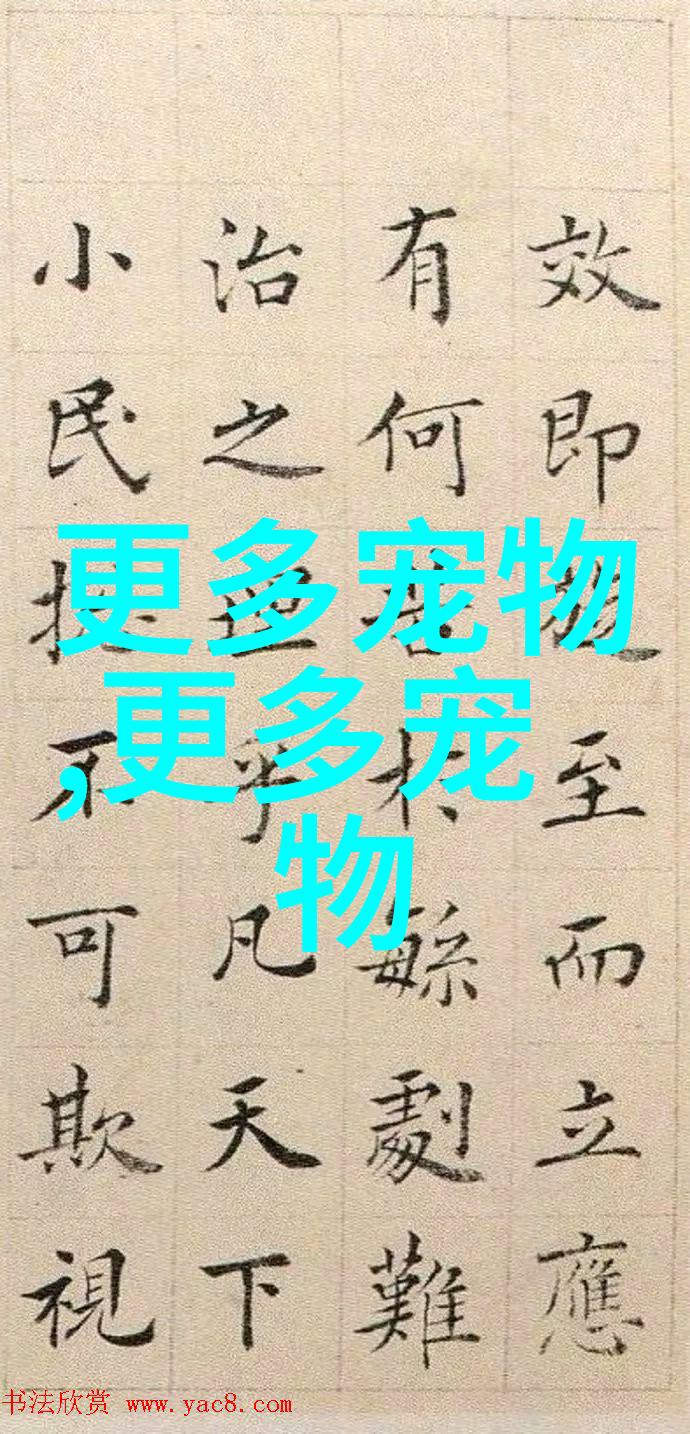 效即至而立應
有何於緐劇難
治之乎凡天下
小民不可欺視
更多宠物
,更多宠
物
书法欣赏 www.yac8.com